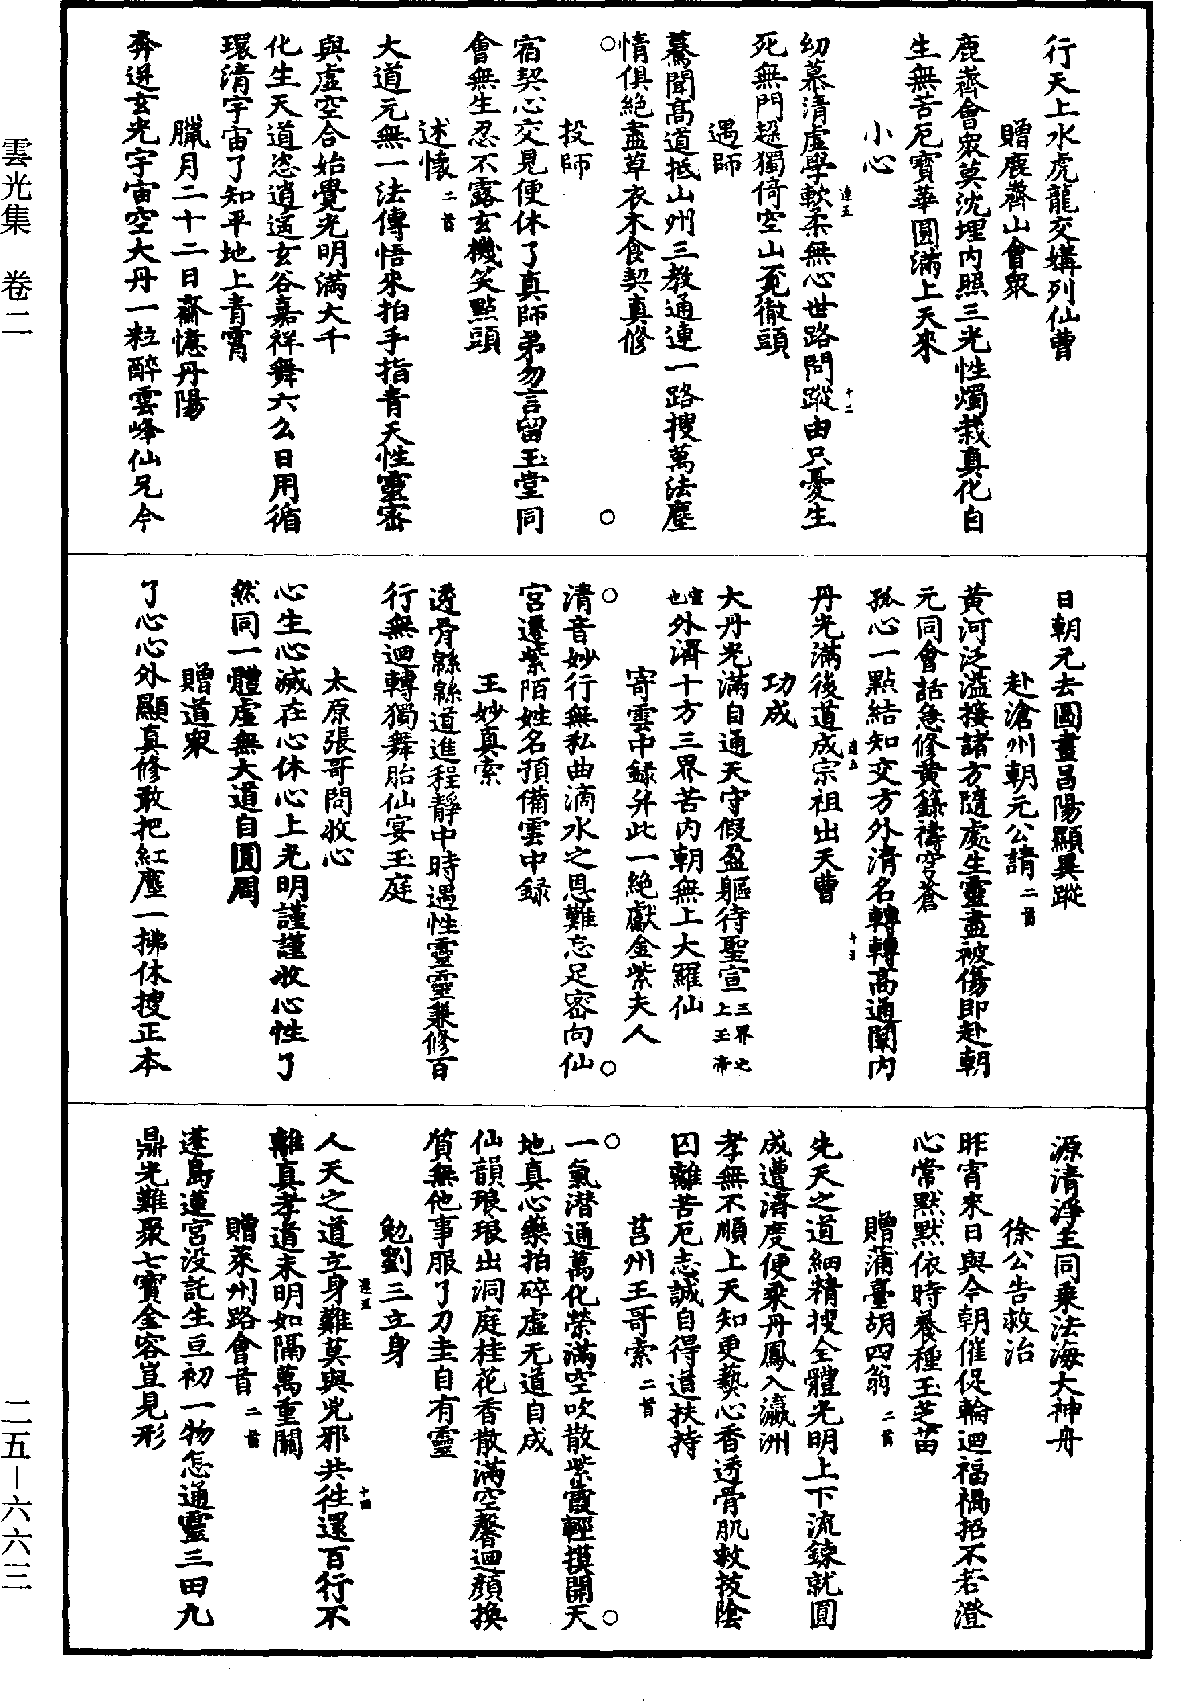 行天上水虎龍交媾列仙曹
贈鹿齊山會眾
鹿齊會眾莫沈埋內照三光性燭栽真化自
生無苦厄寶華圓滿上天來
小心
幼慕清虛學軟柔無心世路問蹤由只憂生
死無門趨獨倚空山覓徹頭
遇師
驀聞高道抵山州三教通連一路搜萬法塵
情俱絕盡草衣木食契真修
投師
宿契心交見便休了真師弟勿言留玉堂同
會無生忍不露玄機笑點頭
述懷二首
大道元無一法傳悟來拍手指青天性靈密
與虛空合始覺光明滿大千
化生天道恣逍遙玄谷嘉祥舞六么日用循
環清宇宙了知平地上青霄
臘月二十二日齋憶丹陽
奔迸玄光宇宙空大丹一粒醉雲峰仙兄今
日朝元去圖畫昌陽顯異蹤
赴滄州朝元公請二首
黃河泛溢接諸方隨處生靈盡被傷即赴朝
元同會話急修黃籙禱穹蒼
孤心一點結知交方外清名轉轉高通闡內
丹光滿後道成宗祖出天曹
功成
大丹光滿自通天守假盈軀待聖宣三界之上玉帝
宣也外濟十方三界苦內朝無上大羅仙
寄雲中録并此一絕獻金紫夫人
清音妙行無私曲滴水之恩難忘足密向仙
宮遷紫陌姓名預備雲中録
王妙真索
透骨綿綿道進程靜中時遇性靈靈兼修百
行無迴轉獨舞胎仙宴玉庭
太原張哥問收心
心生心滅在心休心上光明謹謹收心性了
然同一體虛無大道自圓周
贈道眾
了心心外顯真修敢把紅塵一拂休搜正本
源清淨主同乘法海大神舟
徐公告救治
昨宵來日與今朝催促輪迴福禍招不若澄
心常默默依時養種玉芝苗
贈蒲臺胡四翁二首
先天之道細精搜全體光明上下流鍊就圓
成遭濟度便乘丹鳳入瀛洲
孝無不順上天知更爇心香透骨肌救拔陰
囚離苦厄志誠自得道扶持
莒州王哥索二首
一氣潜通萬化榮滿空吹散紫霞輕摸開天
地真心藥拍碎虛无道自成
仙韻琅琅出洞庭桂花香散滿空馨迴顏換
質無他事服了刀圭自有靈
勉劉三立身
人天之道立身難莫與兇邪共徃還百行不
離真孝道未明如隔萬重關
贈萊州路會首二首
蓬島蓮宮没託生亘初一物怎通靈三田九
鼎光難聚七寶金容豈見形
雲光集　卷二
二五—六六三